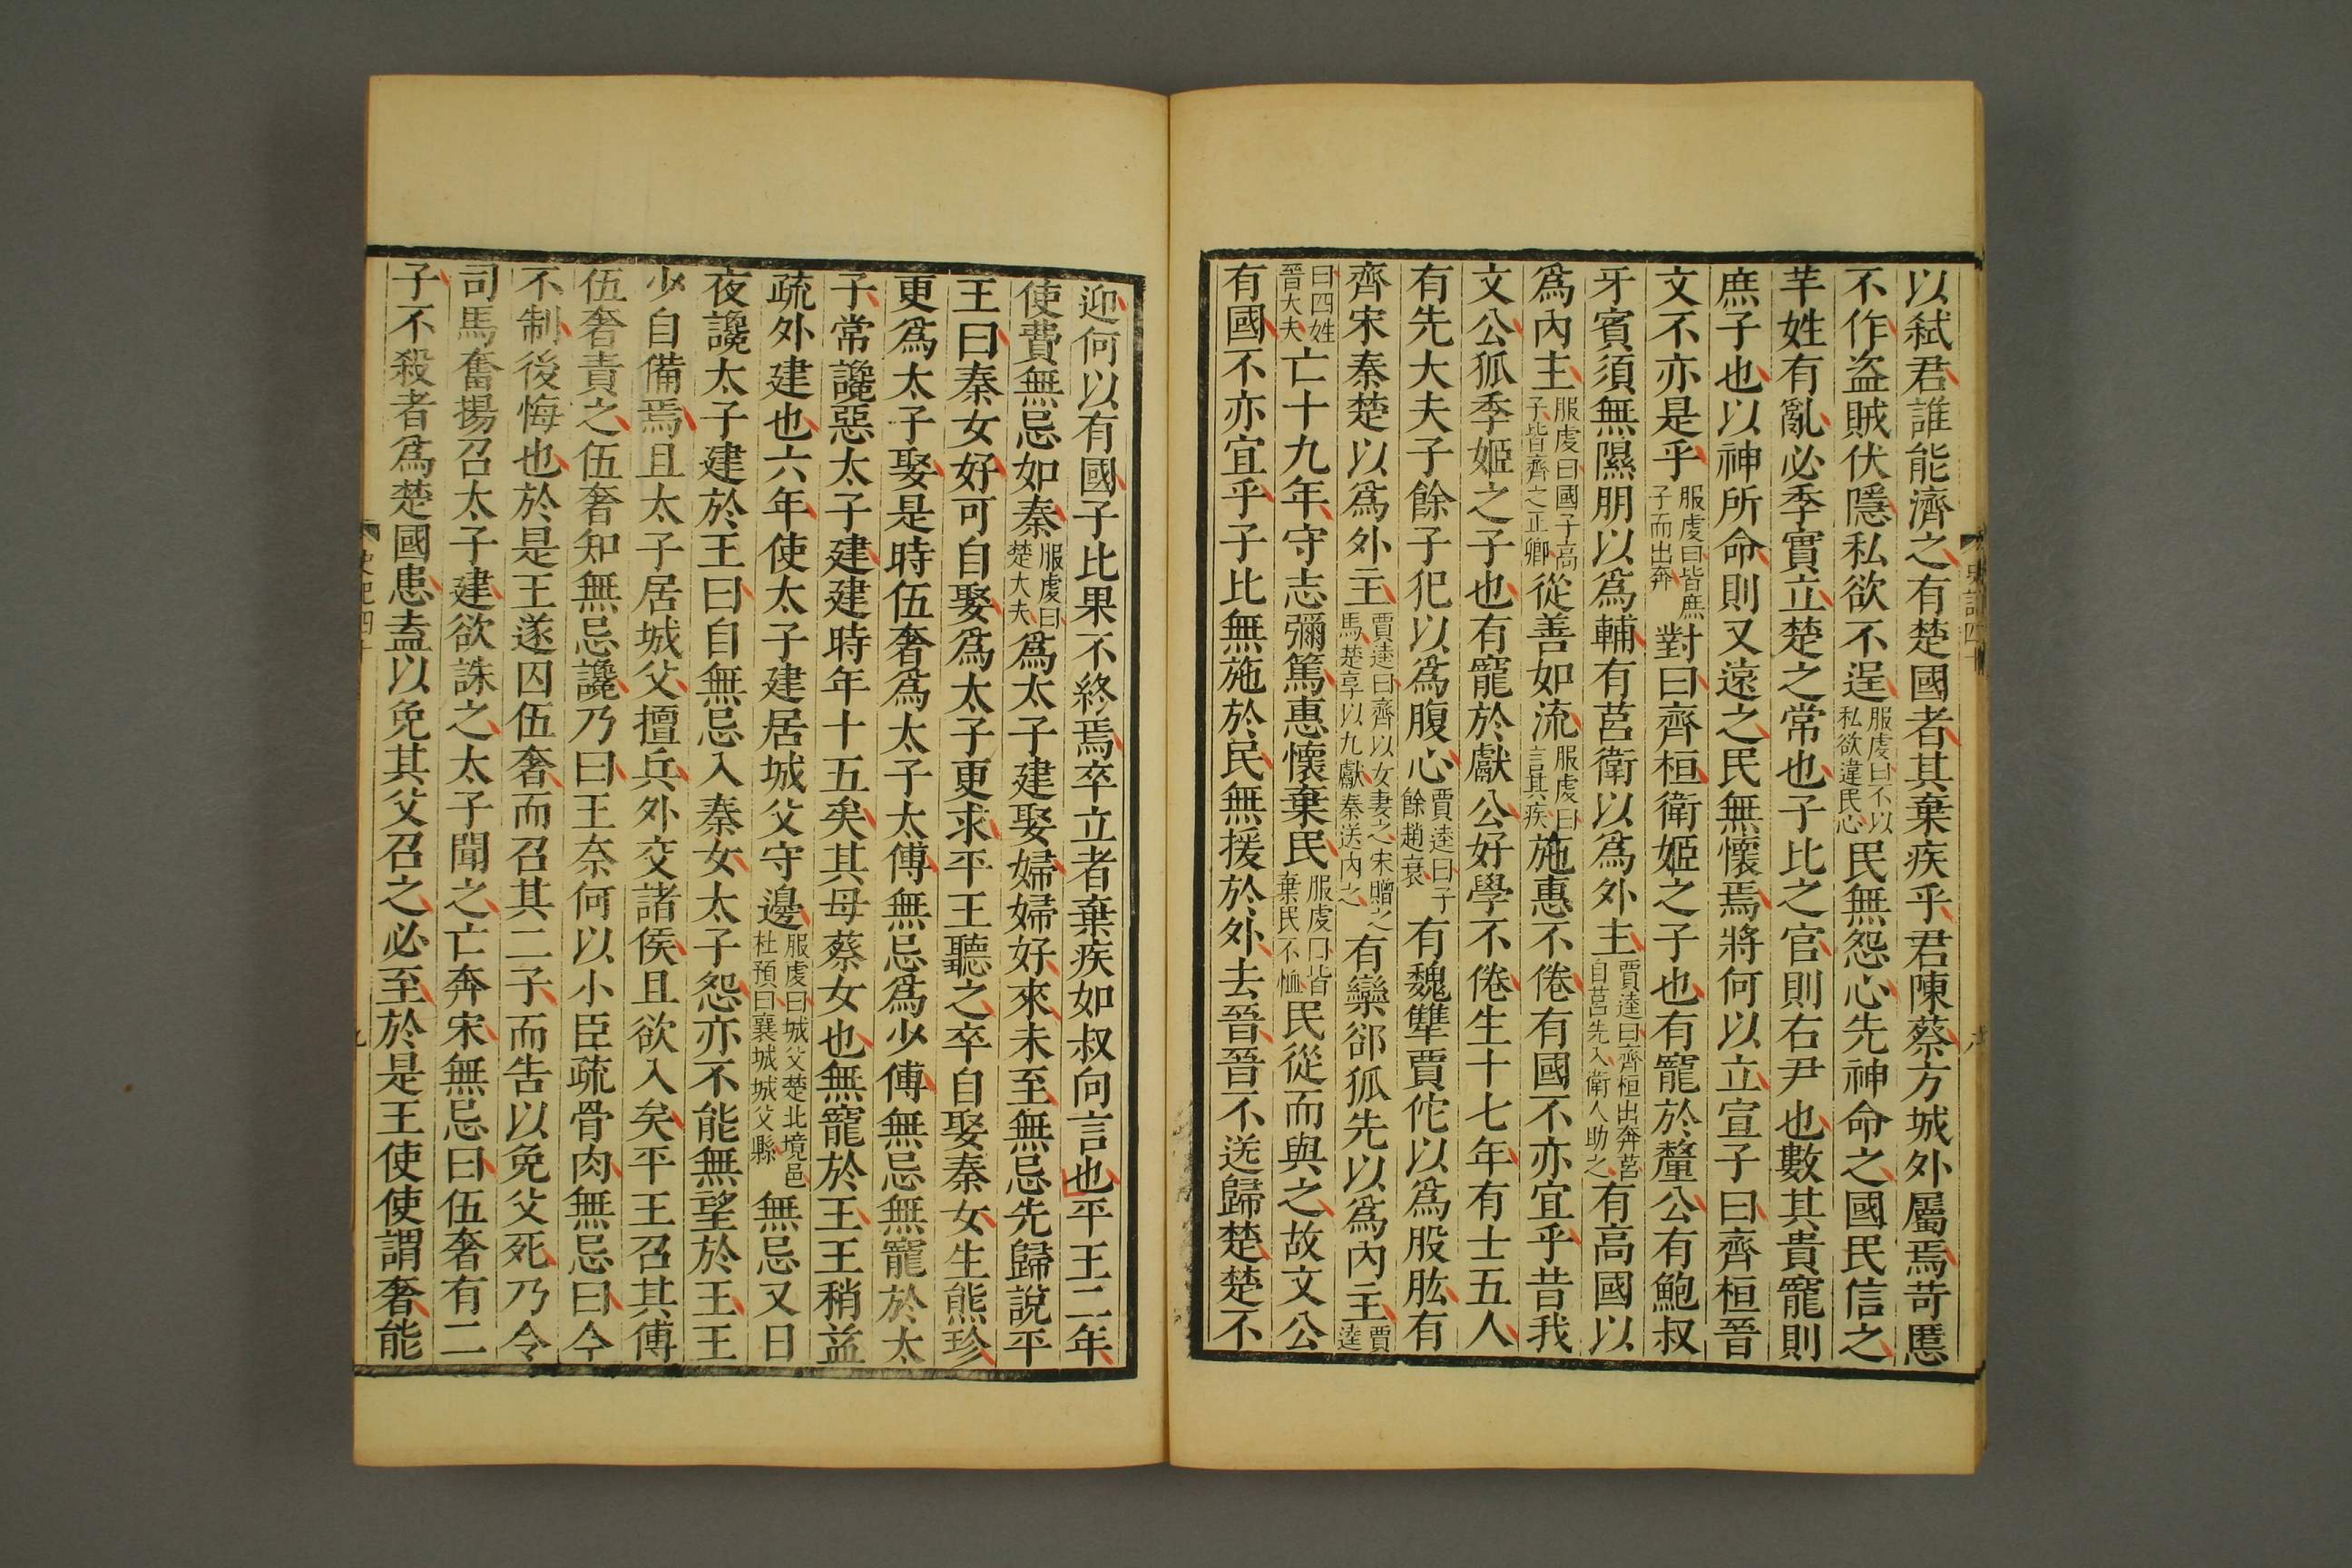 以弑君誰能濟之有楚國者其棄疾乎君陳蔡方城外屬焉苛慝
不作盗賊伏隱私欲不逞服虔曰不以私欲違民心民無怨心先神命之國民信之
羋姓有亂必季實立楚之常也子比之官則右尹也數其貴寵則
庶子也以神所命則又遠之民無懷焉將何以立宣子曰齊桓晉
文不亦是乎服虔曰皆庶子而出奔對曰齊桓衛姬之子也有寵於釐公有鮑叔
牙賓須無隰朋以爲輔有莒衛以爲外主賈逵曰齊桓出奔莒自莒先入衛人助之有高國以
爲內主服虔曰國子高子皆齊之正卿從善如流服虔曰言其疾施惠不倦有國不亦宜乎昔我
文公狐季姬之子也有寵於獻公好學不倦生十七年有士五人
有先大夫子餘子犯以爲腹心賈逵曰子餘趙衰有魏犨賈佗以爲股肱有
齊宋秦楚以爲外主賈逵曰齊以女妻之宋贈之馬楚享以九獻秦送內之有欒郤狐先以爲內主賈逵
曰四姓晉大夫亡十九年守志彌篤惠懷棄民服虔曰皆棄民不恤民從而與之故文公
有國不亦宜乎子比無施於民無援於外去晉晉不送歸楚楚不
史記四十
迎何以有國子比果不終焉卒立者棄疾如叔向言也平王二年
使費無忌如秦服虔曰楚大夫爲太子建娶婦婦好來未至無忌先歸說平
王曰秦女好可自娶爲太子更求平王聽之卒自娶秦女生熊珍
更爲太子娶是時伍奢爲太子太傅無忌爲少傅無忌無寵於太
子常讒惡太子建建時年十五矣其母蔡女也無寵於王王稍益
疏外建也六年使太子建居城父守邊服虔曰城父楚北境邑杜預曰襄城城父縣無忌又日
夜讒太子建於王曰自無忌入秦女太子怨亦不能無望於王王
少自備焉且太子居城父擅兵外交諸侯且欲入矣平王召其傅
伍奢責之伍奢知無忌讒乃曰王奈何以小臣疏骨肉無忌曰今
不制後悔也於是王遂囚伍奢而召其二子而告以免父死乃令
司馬奮揚召太子建欲誅之太子聞之亡奔宋無忌曰伍奢有二
子不殺者爲楚國患盍以免其父召之必至於是王使使謂奢能
史記四十
九